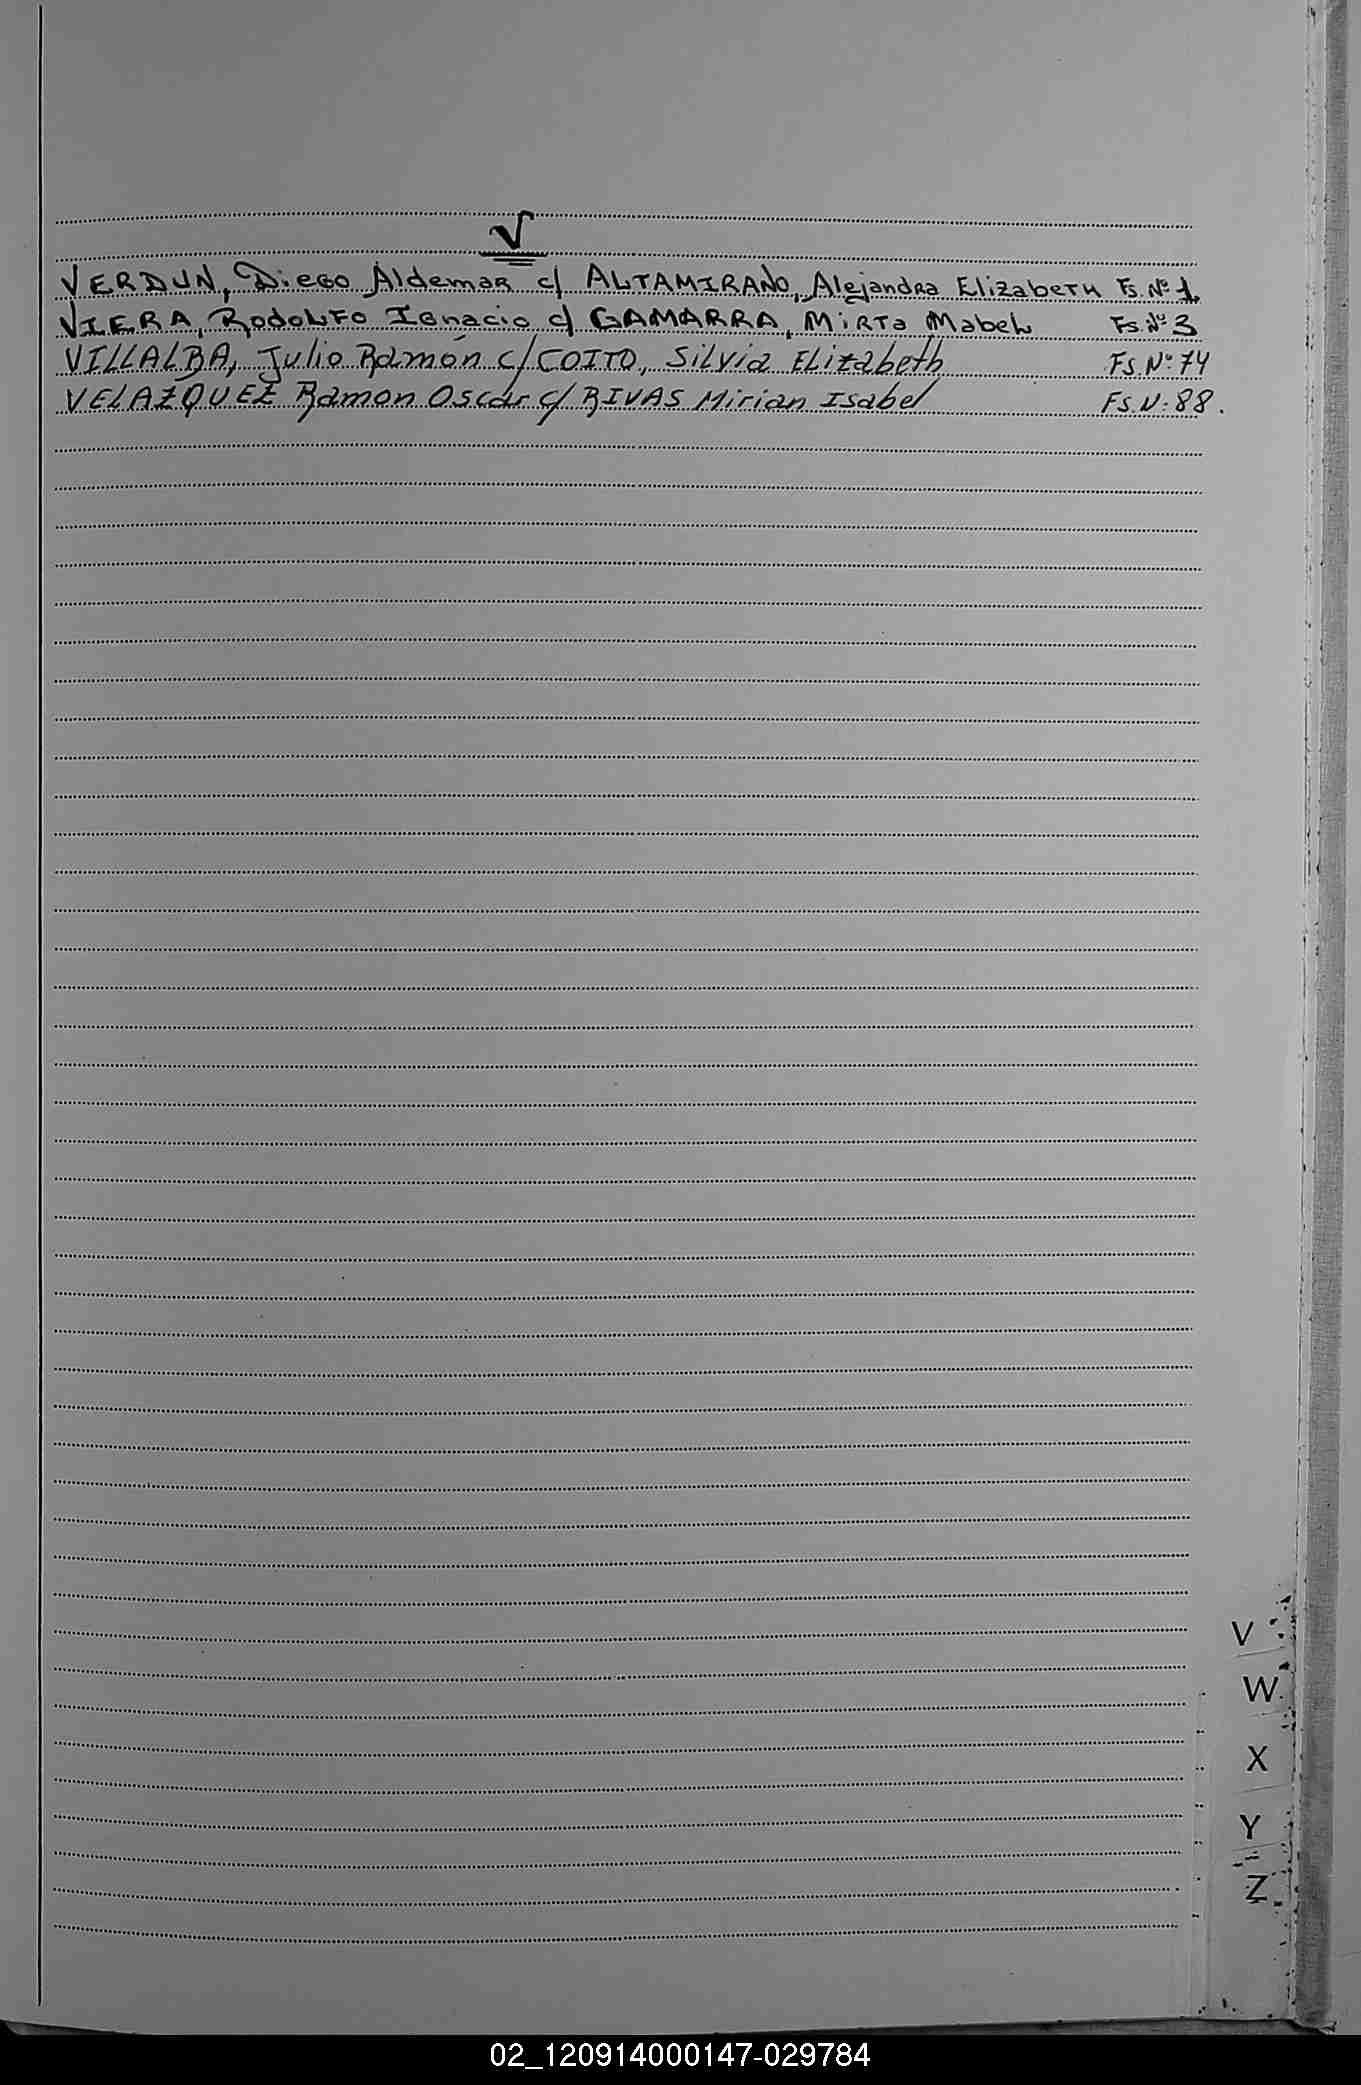 V
VERDUN, Diego Aldemar c/ ALTAMIRANO, Alejandra Elizabeth Fs. Nº 1.
VIERA, Rodolfo Ignacio c/ GAMARRA, Mirta Mabel Fs. Nº 3
VILLALBA, Julio Ramón c/ COITO, Silvia Elizabeth FS. Nº 74
VELAZQUEZ Ramon Oscar c/ RIVAS Mirian Isabel FS. N: 88.
V
W
X
Y
Z
02_120914000147-029784